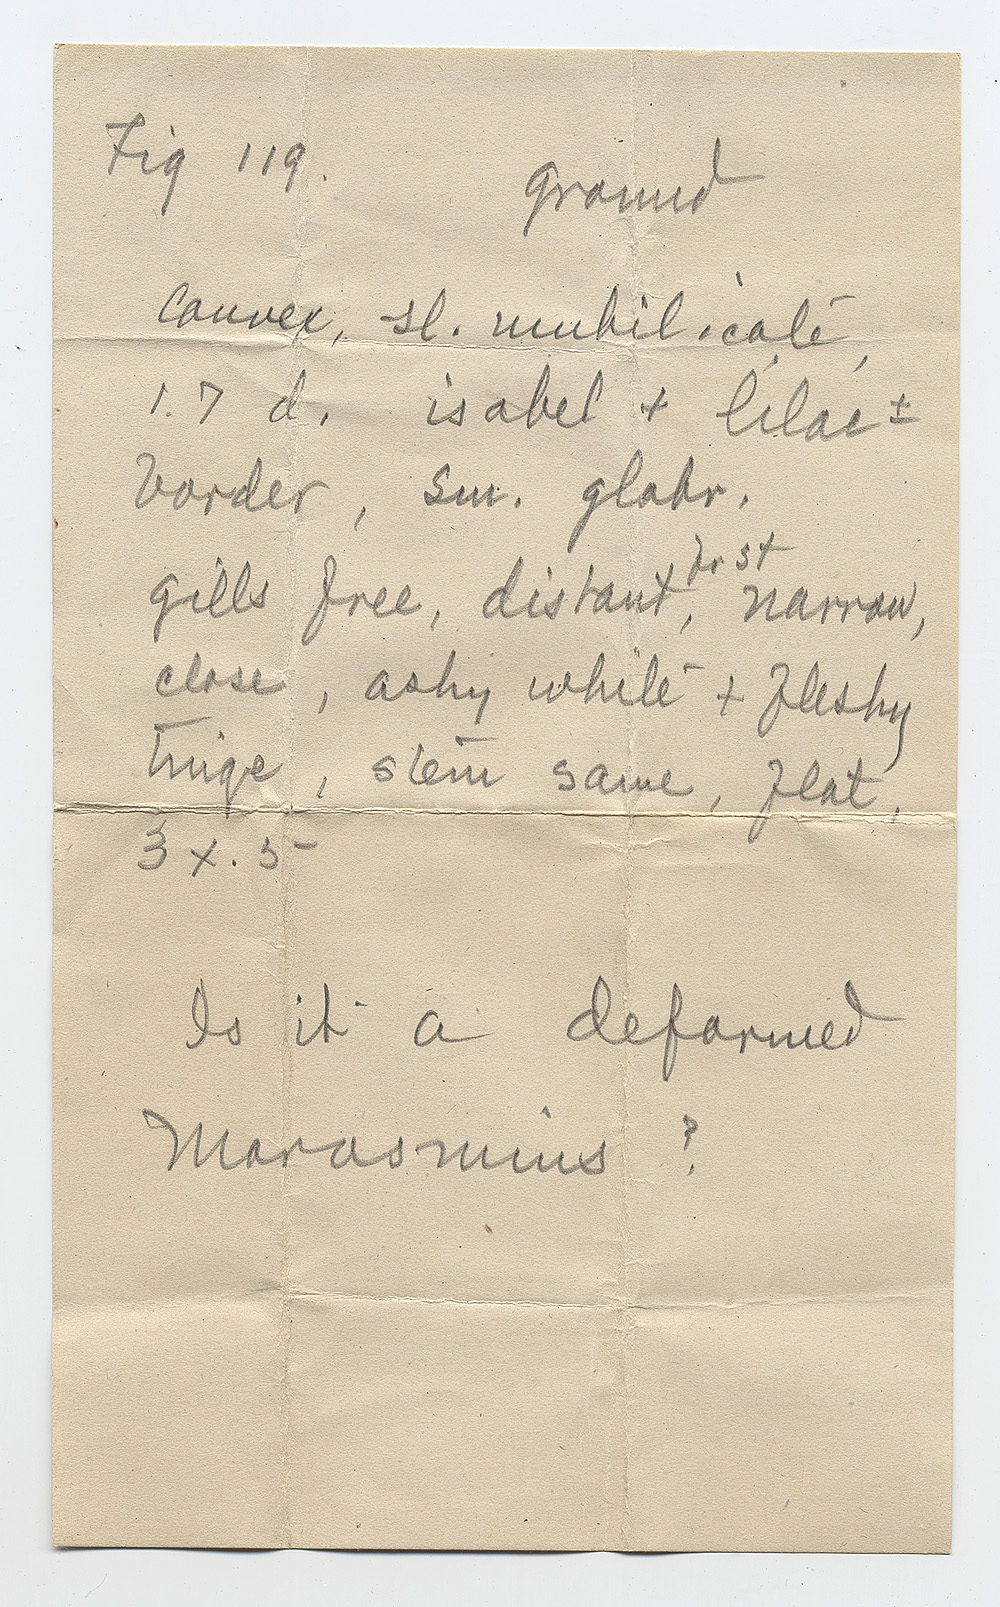 Fig 119.
ground
Convex, sl. umbilicate,
1.7 d. isabel + lilac ±
border, sm. glabr.
gills free, distant, narrow,
close, ashy white + fleshy
tinge, stem same, flat,
3 x .5
Is it a deformed
Marasmius ?